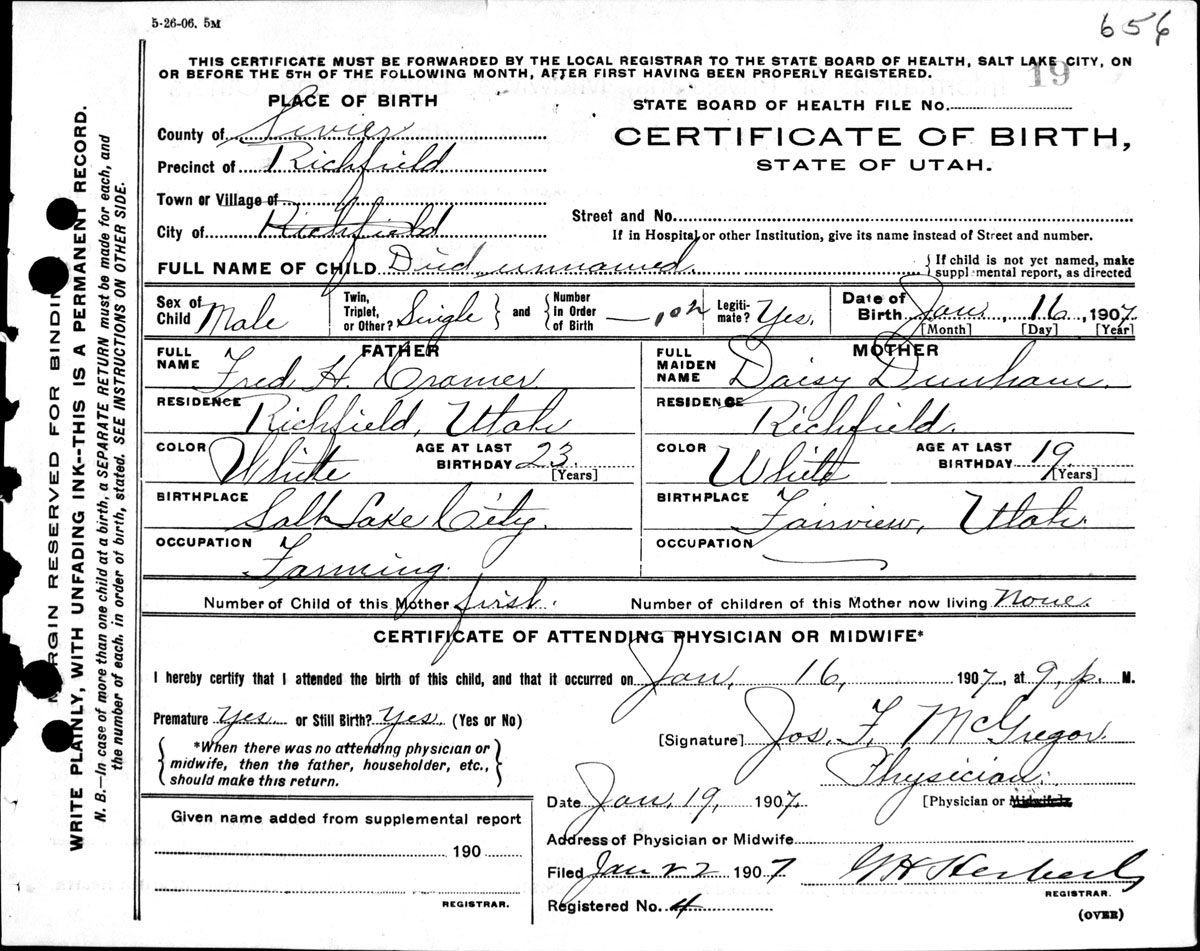 5-26-06. 5M
656
THIS CERTIFICATE MUST BE FORWARDED BY THE LOCAL REGISTRAR TO THE STATE BOARD OF HEALTH, SALT LAKE CITY, ON
OR BEFORE THE 5TH OF THE FOLLOWING MONTH, AFTER FIRST HAVING BEEN PROPERLY REGISTERED.
19
PLACE OF BIRTH
STATE BOARD OF HEALTH FILE NO.
County of Sevier
CERTIFICATE OF BIRTH,
Precinct of Richfield
STATE OF UTAH.
Town or Village of
Street and No.
City of Richfield
If in Hospital or other Institution, give its name instead of Street and number.
FULL NAME OF CHILD Died unnamed. { If child is not yet named, make supplemental report, as directed
Sex of Child Male Twin, Triplet, or Other? Single } and { Number in Order of Birth Legiti-mate? Yes. Date of Birth Jan. 16, 1907.
[Month] [Day] [Year]
FATHER MOTHER
FULL NAME Fred H. Cramer. FULL MAIDEN NAME Daisy Dunham.
RESIDENCE Richfield, Utah RESIDENCE Richfield.
COLOR White AGE AT LAST BIRTHDAY 23. [Years] COLOR White AGE AT LAST BIRTHDAY 19. [Years]
BIRTHPLACE Salt Lake City. BIRTHPLACE Fairview, Utah.
OCCUPATION Farming. OCCUPATION
Number of Child of this Mother first. Number of children of this Mother now living None.
CERTIFICATE OF ATTENDING PHYSICIAN OR MIDWIFE*
I hereby certify that I attended the birth of this child, and that it occurred on Jan. 16, 1907, at 9, p. M.
Premature yes or Still Birth? Yes (Yes or No)
[Signature] Jos. F. McGregor.
*When there was no attending physician or
midwife, then the father, householder, etc.,
should make this return.
Physician.
[Physician or Midwife]
Date Jan. 19, 1907.
Given name added from supplemental report
Address of Physician or Midwife
190
Filed Jan 22 1907 G H Herbert
REGISTRAR.
REGISTRAR.
Registered No. 4
(OVER)
MARGIN RESERVED FOR BINDING
WRITE PLAINLY, WITH UNFADING INK--THIS IS A PERMANENT RECORD.
N. B.—In case of more than one child at a birth, a SEPARATE RETURN must be made for each, and
the number of each, in order of birth, stated. SEE INSTRUCTIONS ON OTHER SIDE.
1